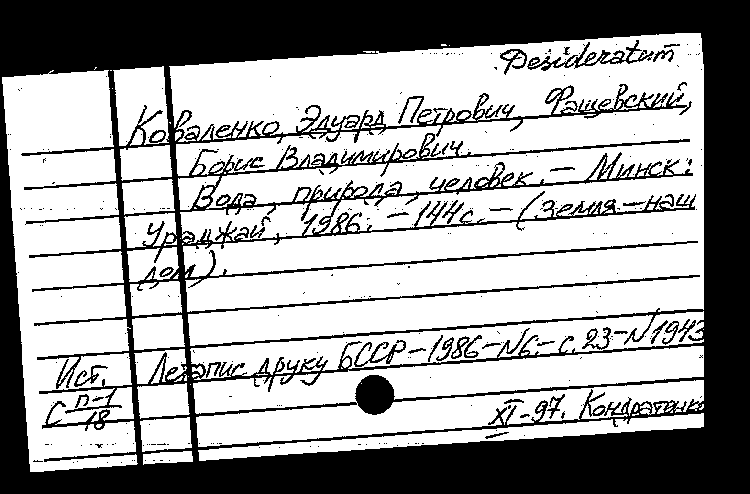 Desideratum
Коваленко, Эдуард Петрович, Фащевский,
Борис Владимирович.
Вода, природа, человек. – Минск:
Ураджай, 1986. – 144с. – (Земля – наш
дом).
Ист. Летапис друку БССР – 1986 – N6. – с. 23 – N1943
С П-1
18
XI-97. Кондратенко